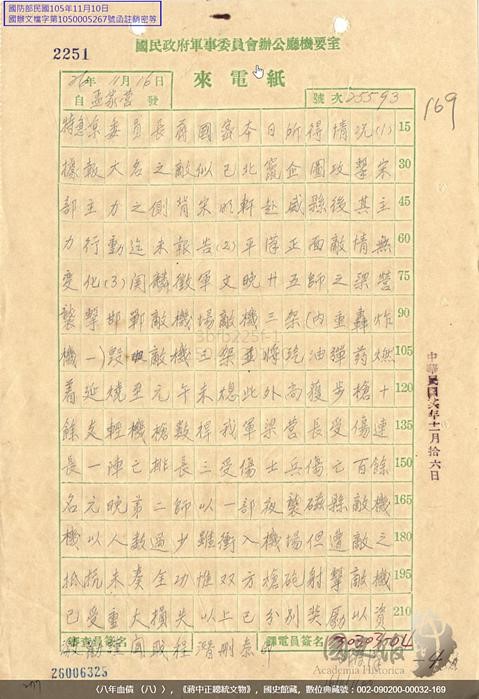 國防部民國105年11月10日
國辦文檔字第1050005267號函註銷密等
2251
國民政府軍事委員會辦公廳機要室
來電紙
26年11月16日
自孟家營發
號次25593
169
特急京委員長蔣國密本日所得情況(1) 15
據報大名之敵似已北竄企圖攻擊宋 30
部主力之側背宋明軒赴威縣後其主 45
力行動迄未報告(2)平漢正面敵情無 60
變化(3)關麟徵軍文晚廿五師之梁營 75
襲擊邯鄲敵機場敵機三架(內重轟炸 90
機一)毀敵機三架並將汽油彈藥燃 105
着延燒至元午未熄此外尚獲步槍十 120
餘支輕機槍數桿我軍梁營長受傷連 135
長一陣亡排長三受傷士兵傷亡百餘 150
名元晚第二師以一部夜襲磁縣敵機 165
機以人數過少雖衝入機場但遭敵之 180
抵抗未奏全功惟双方槍砲射擊敵機 195
已受重大損失以上已分別獎勵以資 210
聞職程潛刪泰印
中華民國廿六年十一月拾六日
審查員簽名
譯電員簽名
26006325
國史館
Academia Historica
《八年血債（八）》,《蔣中正總統文物》，國史館藏，數位典藏號：002-090200-00032-169